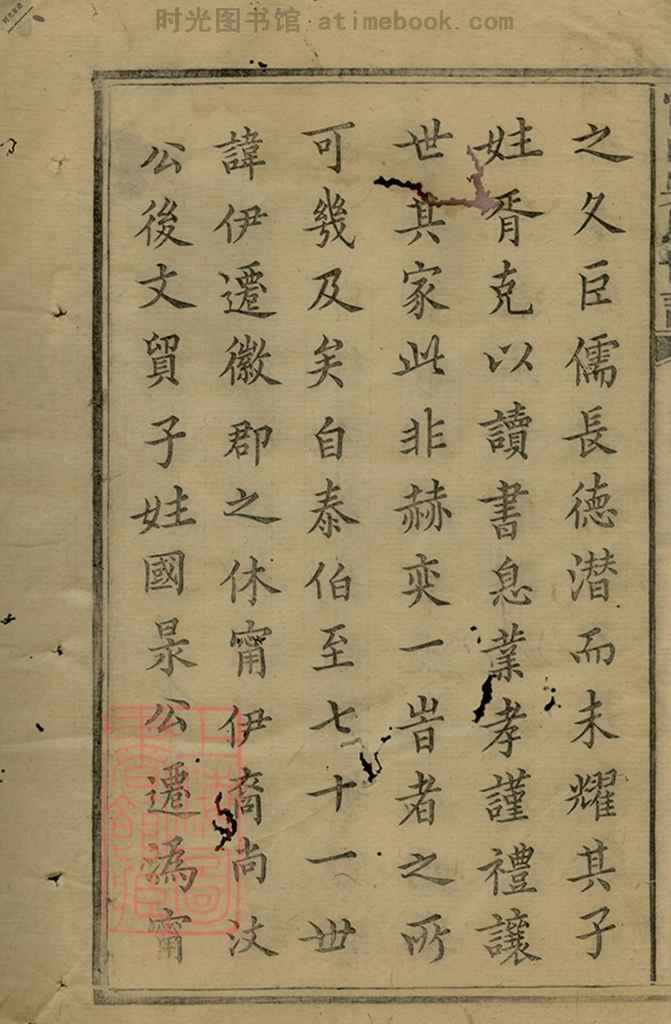 时光图书馆 atimebook.com
之久臣儒長徳潛而未耀其子
姓胥克以讀書息業孝謹禮讓
世其家此非赫奕一旹者之所
可幾及矣自泰伯至七十一世
諱伊遷徽郡之休甯伊裔尚汶
公後文貿子姓國公遷溈甯